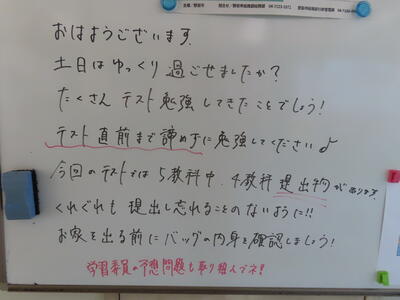 おはようございます.
土日はゆっくり過ごせましたか?
たくさんテスト勉強してきたことでしょう!
テスト直前まで諦めずに勉強してください♪
今回のテストでは5教科中、4教科提出物があります.
くれぐれも提出し忘れることのないように!!
お家を出る前にバッグの内身を確認しましょう!
学習委員の予想問題も取り組んでネ!!